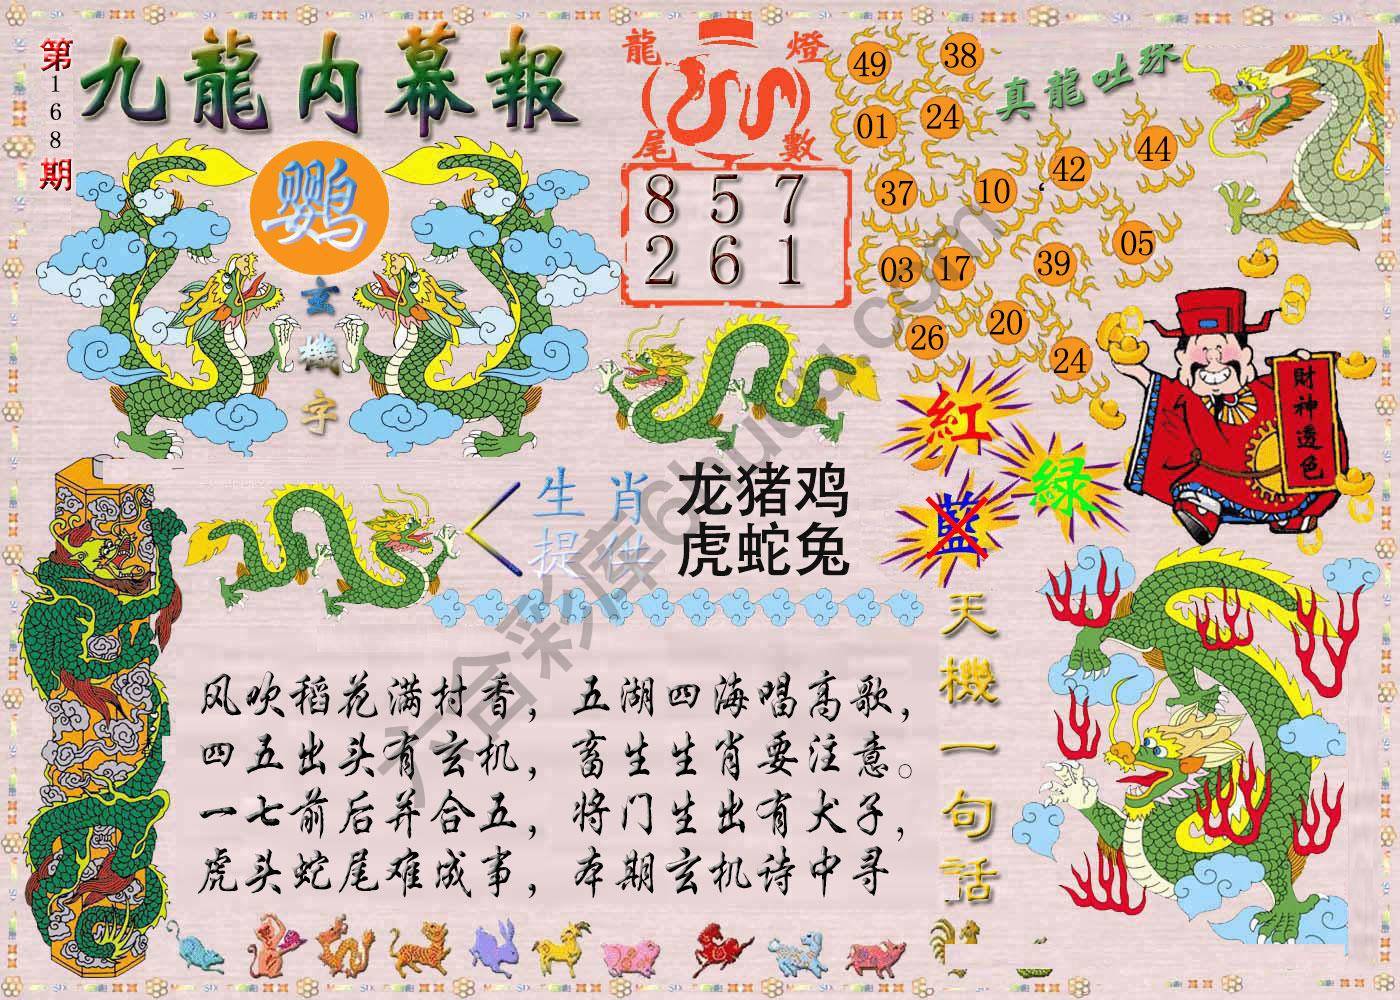 第168期
九龍内幕報
鹦
玄機字
龍燈
尾數
8 5 7
2 6 1
真龍吐珠
49 38
01 24
37 10 42 44
03 17 39 05
26 20 24
財神透色
紅
綠
藍
生肖 龙猪鸡
提供 虎蛇兔
天機一句話
风吹稻花满村香，五湖四海唱高歌，
四五出头有玄机，畜生生肖要注意。
一七前后并合五，将门生出有犬子，
虎头蛇尾难成事，本期玄机诗中寻
六合彩库6hudd.com